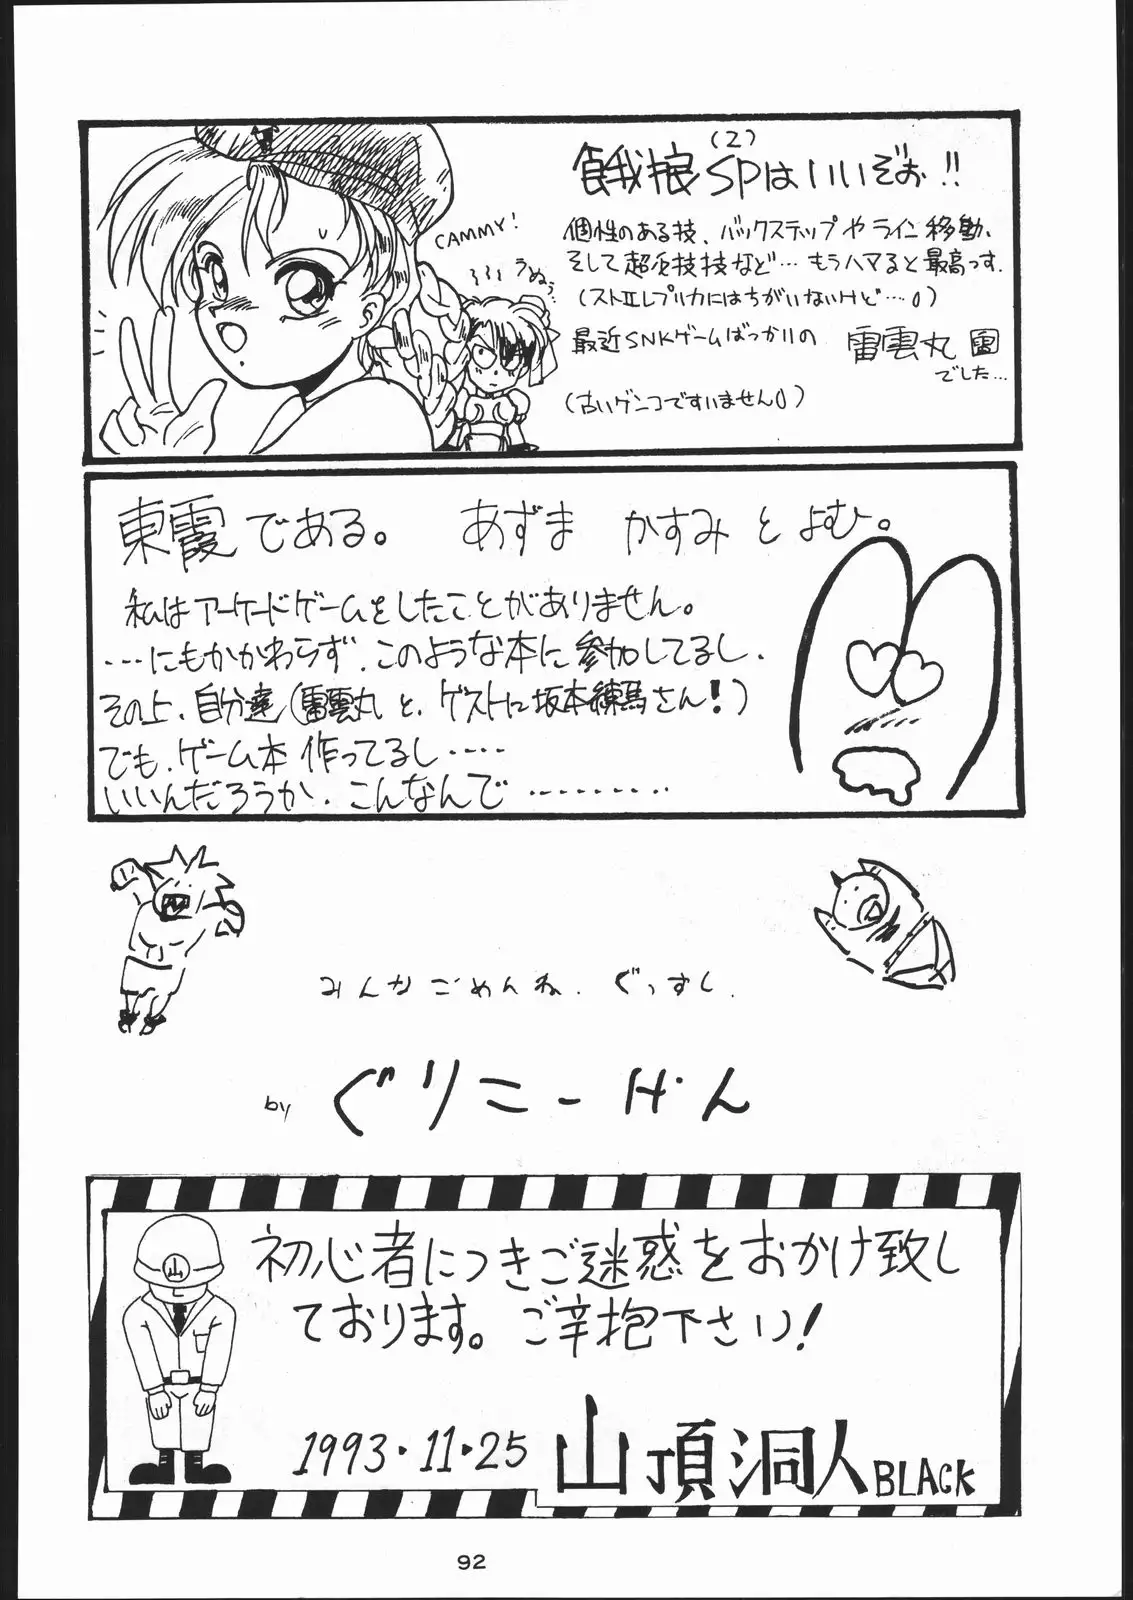 餓狼(2)SPはいいぞお!!
CAMMY!
うぬぅ…
個性のある技、バックステップやライン移動、
そして超必技技など…もうハマると最高っす.
(ストⅡレプリカにはちがいないけど…)
最近SNKゲームばっかりの 雷雲丸
でした…
(古いゲンコですいません)
東霞である。 あずま かすみ と よむ。
私はアーケードゲームをしたことがありません。
…にもかかわらず、このような本に参加してるし、
その上、自分達(雷雲丸と、ゲストに坂本練馬さん!)
でも、ゲーム本作ってるし‥‥‥
いいんだろうか、こんなんで ………
みんなごめんね、ぐっすし.
by ぐりこーげん
山
初心者につきご迷惑をおかけ致し
ております。ご辛抱下さい!
1993・11・25 山頂洞人BLACK
92